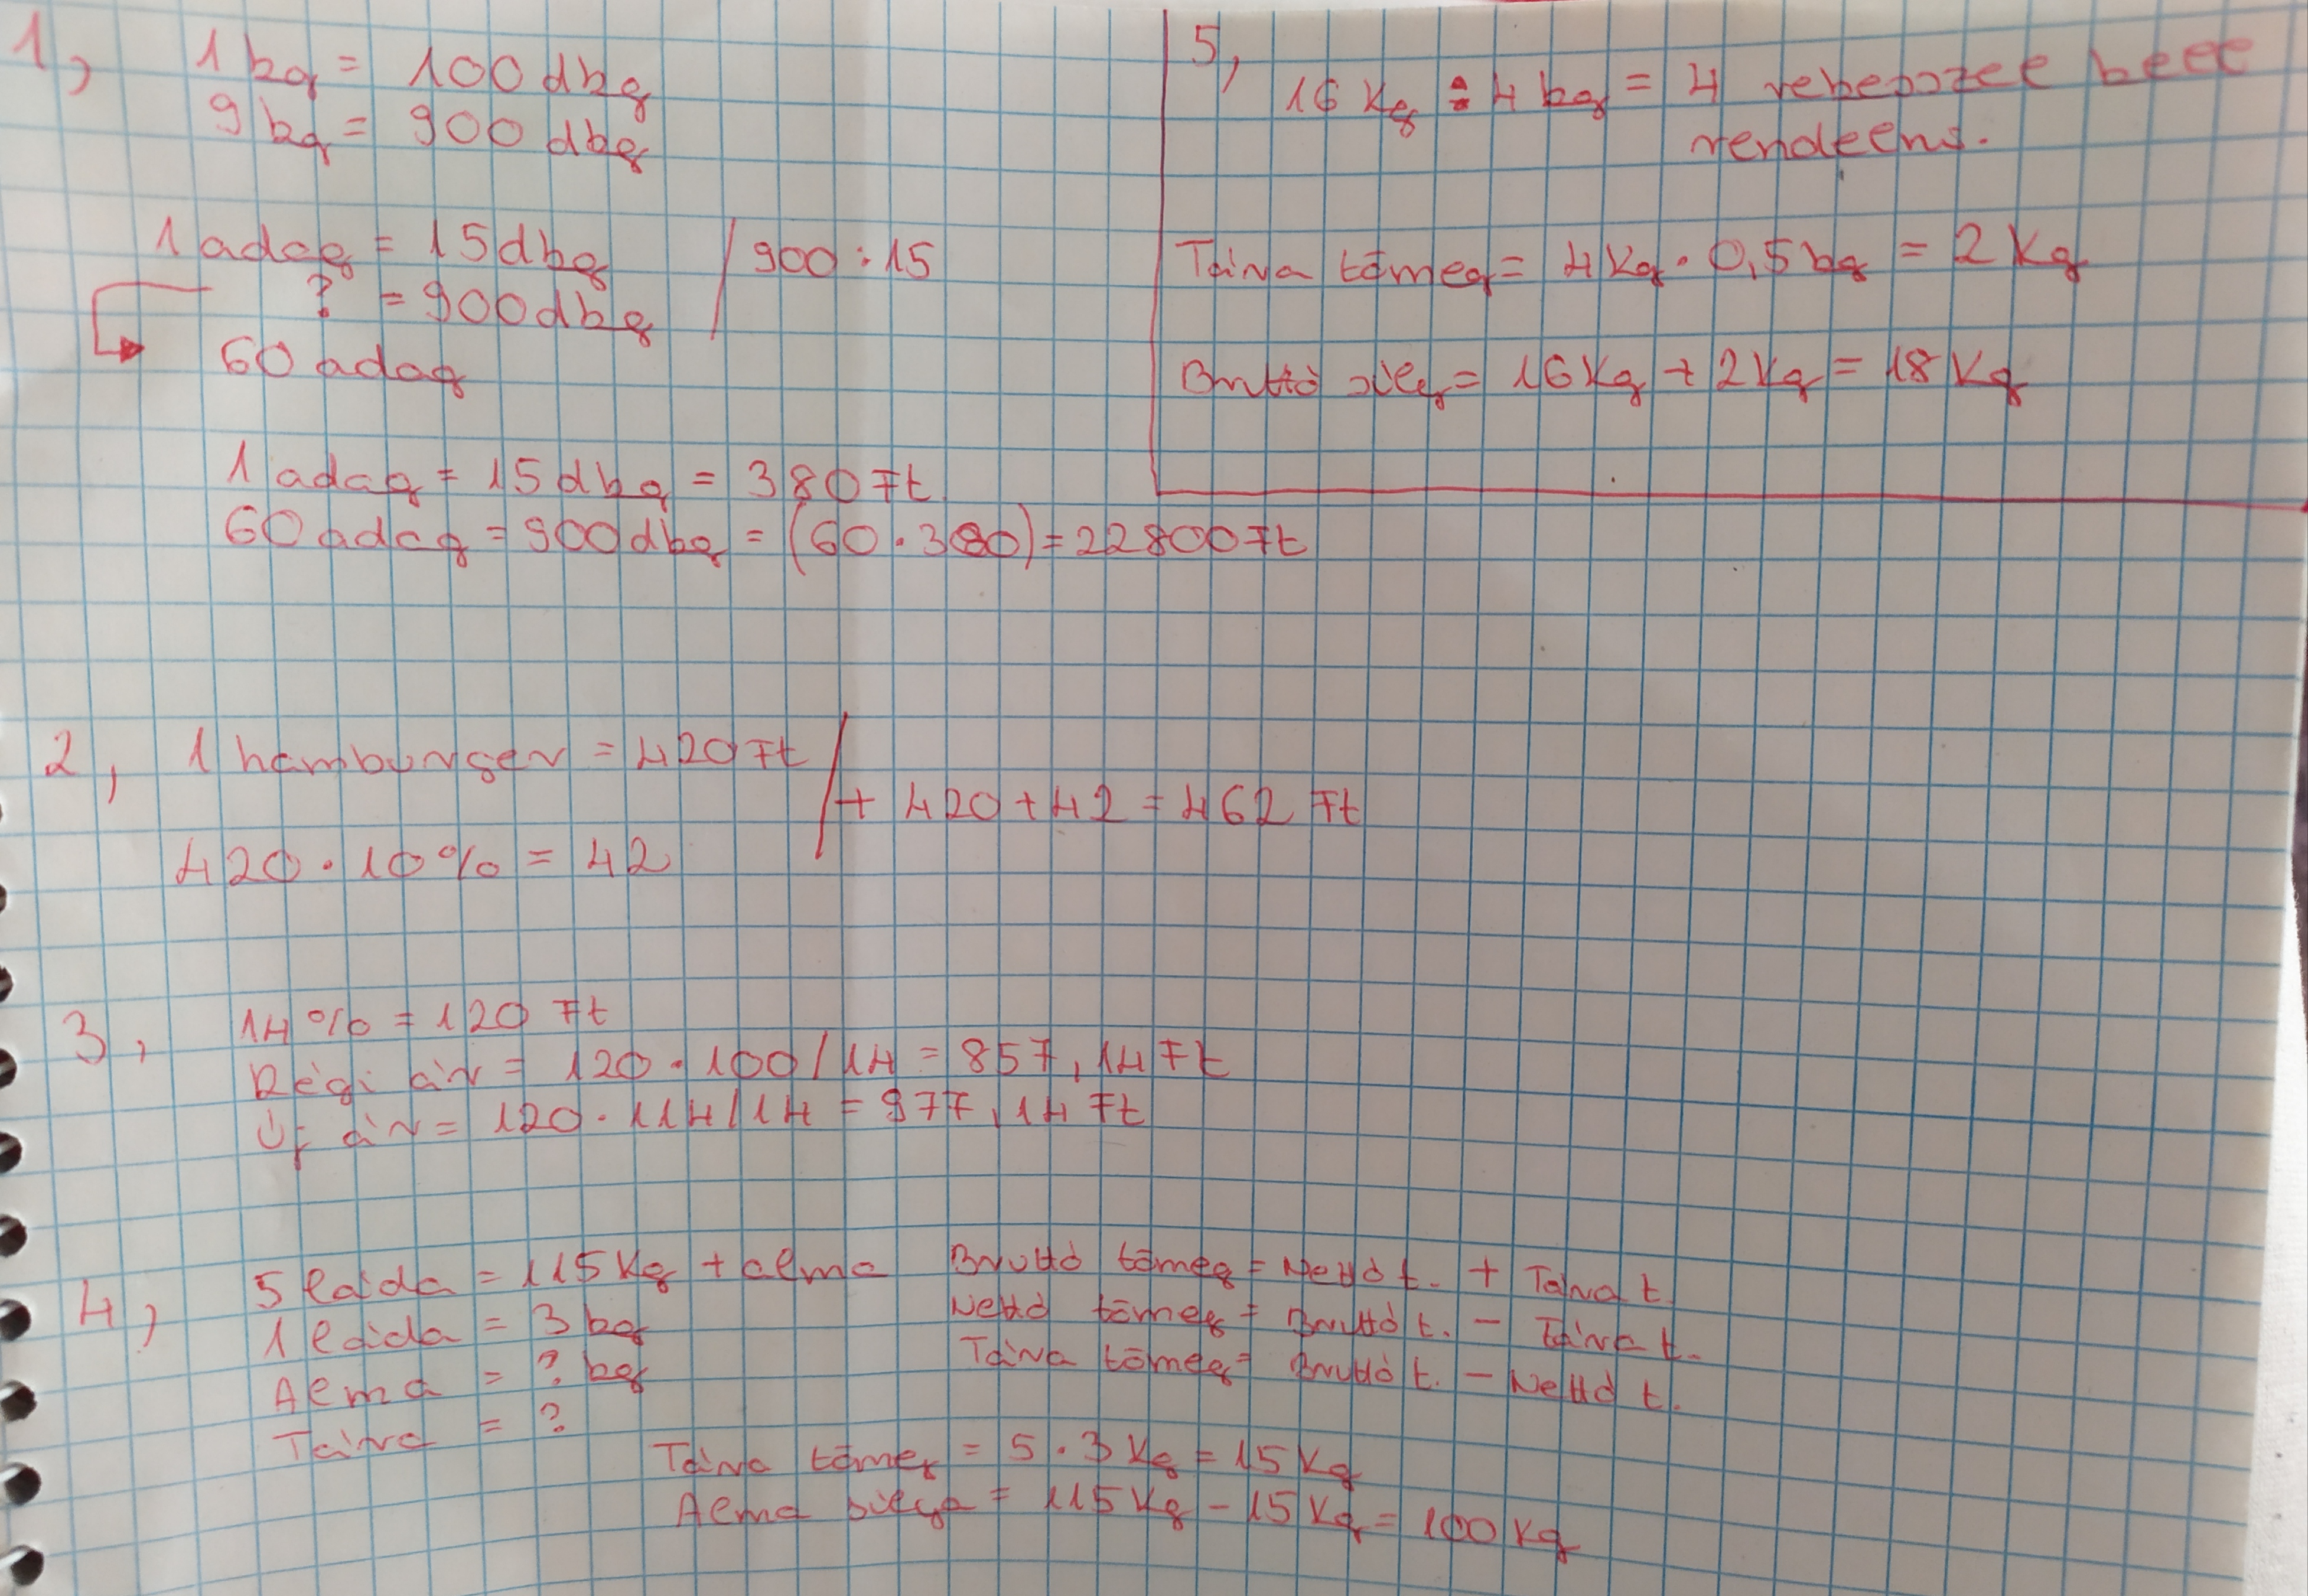 1,
1 kg = 100 dkg
9 kg = 900 dkg
1 adag = 15 dkg / 900 : 15
? = 900 dkg
60 adag
1 adag = 15 dkg = 380 Ft
60 adag = 900 dkg = (60 · 380) = 22800 Ft
2, 1 hamburger = 420 Ft /
+ 420 + 42 = 462 Ft
420 · 10% = 42
3, 14% = 120 Ft
Régi ár = 120 · 100 / 14 = 857,14 Ft
Új ár = 120 · 114 / 14 = 977,14 Ft
4, 5 láda = 115 Kg + alma
1 láda = 3 kg
Alma = ? kg
Tára = ?
Bruttó tömeg = Nettó t. + Tára t.
Nettó tömeg = Bruttó t. - Tára t.
Tára tömeg = Bruttó t. - Nettó t.
Tára tömeg = 5 · 3 Kg = 15 Kg
Alma súlya = 115 Kg - 15 Kg = 100 Kg
5,
16 Kg : 4 kg = 4 rekeszzel kell
rendelni.
Tára tömeg = 4 Kg · 0,5 kg = 2 Kg
Bruttó súly = 16 Kg + 2 Kg = 18 Kg